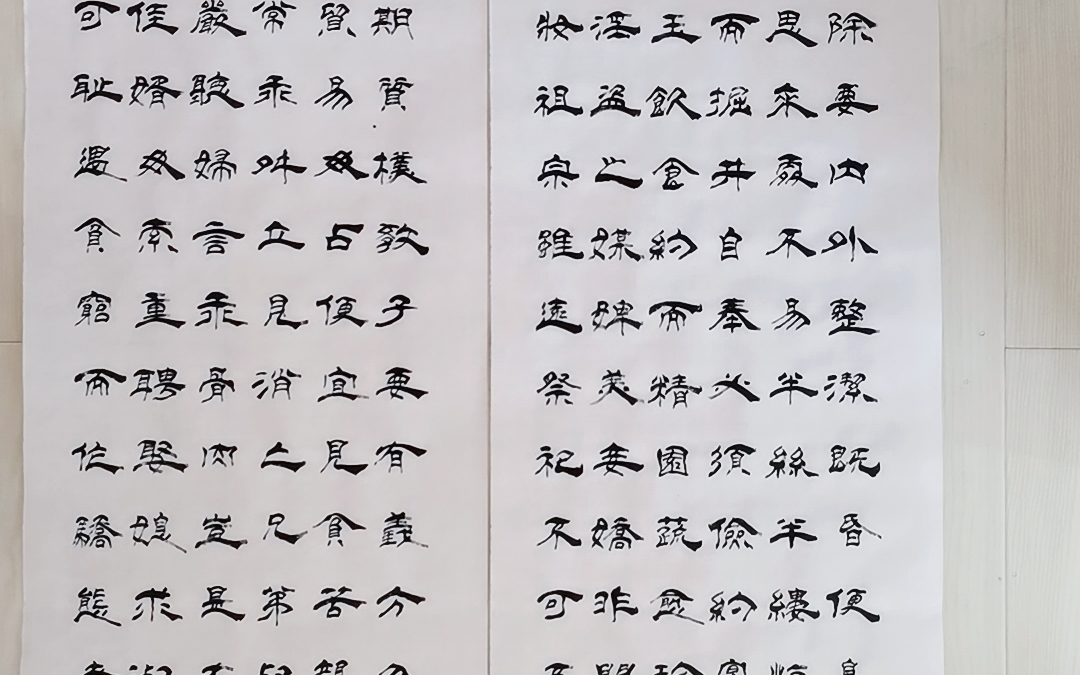 除要内外整潔既昏便
思來處不易半絲半縷
而掘井自奉必須儉約
玉飲食約而精園蔬愈珍
淫盜之媒婢美妾嬌非閨
妝祖宗雖遠祭祀不可不
期質樸教子要有義方
貿易毋占便宜見貧苦親
常乖舛立見消亡兄弟叔
嚴聽婦言乖骨肉豈是
佳婿毋索重聘娶媳求淑
可恥遇貧窮而作驕態者